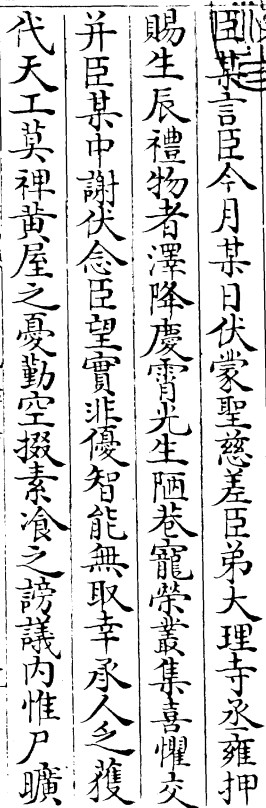 臣某言臣今月某日伏蒙聖慈差臣弟大理寺丞雍押
賜生辰禮物者澤降慶霄光生陋巷寵榮叢集喜懼交
并臣某中謝伏念臣望實非優智能無取幸承人乏獲
代天工莫裨黄屋之憂勤空掇素飡之謗議内惟尸曠